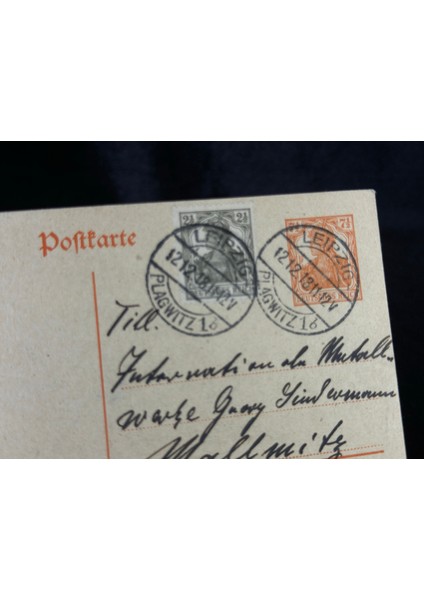 Postkarte
2½ 2½
7½
LEIPZIG
12.12.18.11-12V
PLAGWITZ 1d
LEIPZIG
12.12.18.11-12V
PLAGWITZ 1d
Titl.
Internationale Metall-
werke Georg Lindermann
Mallmitz